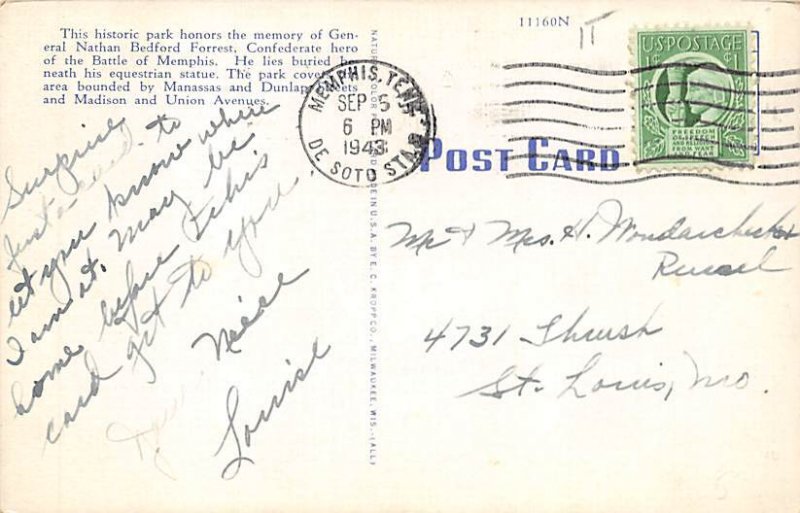 This historic park honors the memory of Gen-
eral Nathan Bedford Forrest, Confederate hero
of the Battle of Memphis. He lies buried be-
neath his equestrian statue. The park covers
area bounded by Manassas and Dunlap Streets
and Madison and Union Avenues.
11160N
U.S. POSTAGE
1¢ 1¢
FREEDOM
OF SPEECH
AND RELIGION
FROM WANT
AND FEAR
MEMPHIS, TENN.
SEP 5
6 PM
1943
DE SOTO STA.
POST CARD
MADE IN U.S.A. BY E. C. KROPP CO., MILWAUKEE, WIS.—(ALL)
Surprise
Just to
let you know where
I am at. May be
home before this
card get to you
Niece
Louise
Mr & Mrs. H.
Russel
4731 Thrush
St. Louis, Mo.